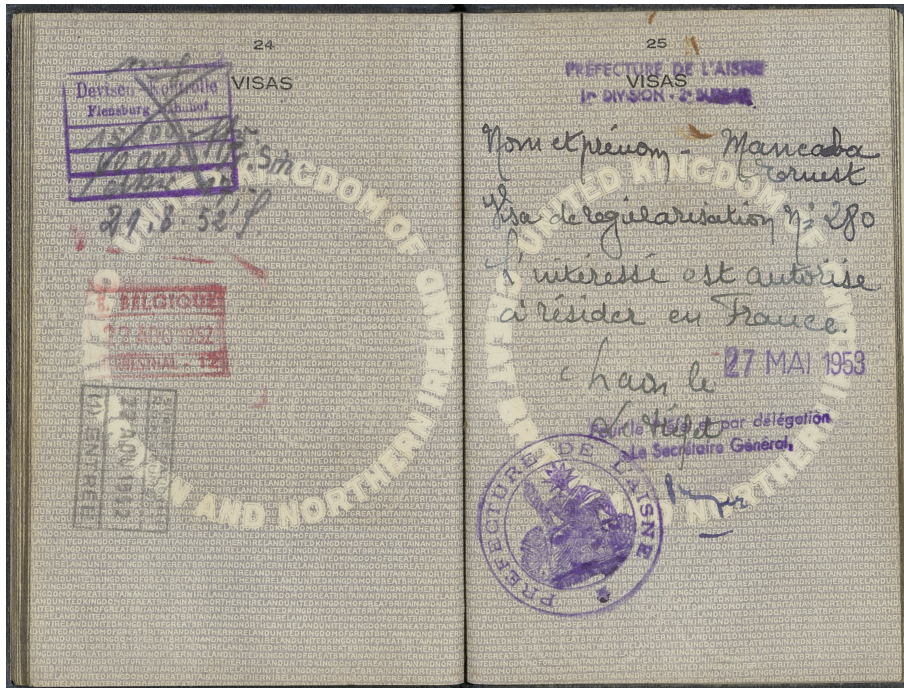 24
VISAS
Devisen Kontrolle
Flensburg Bahnhof
15 000
21.8.52
BELGIQUE
22 AOU 1952
ENTRÉE
UNITED KINGDOM OF GREAT BRITAIN AND NORTHERN IRELAND
25
PRÉFECTURE DE L'AISNE
VISAS
1re DIVISION - 2e BUREAU
Nom et prénom - Mancoba
Ernest
Visa de regularisation N° 280
L'intéressé est autorise
à résider en France.
Laon le 27 MAI 1953
Le Préfet
Pour le Préfet et par délégation
Le Secrétaire Général,
PREFECTURE DE L'AISNE
UNITED KINGDOM OF GREAT BRITAIN AND NORTHERN IRELAND